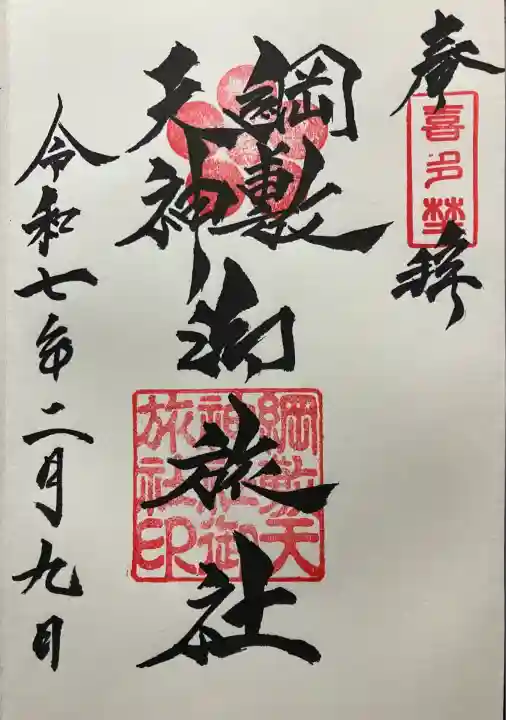 奉拝
喜多埜
綱敷
天神
御旅社
綱敷天
神社御
旅社印
令和七年二月九日